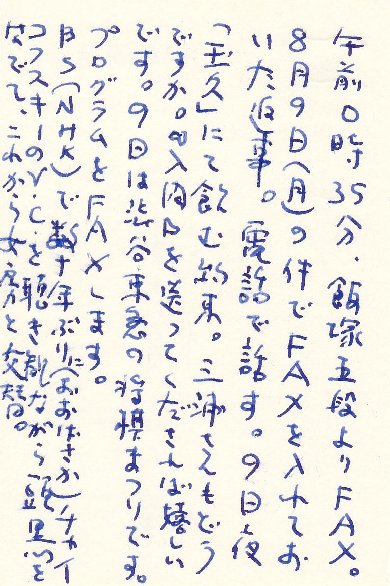 午前0時35分、飯塚五段よりFAX。
8月9日(月)の件でFAXを入れてお
いた返事。電話で話す。9日夜
「玉久」にて飲む約束。三浦さんもどう
ですか。を送ってくだされば嬉しい
です。9日は渋谷東急の将棋まつりです。
プログラムをFAXします。
BS(NHK)で数十年ぶりに(おおげさか)チャイ
コフスキーのV・C・を聴きながら頭を
なでて、これから女房と交替。